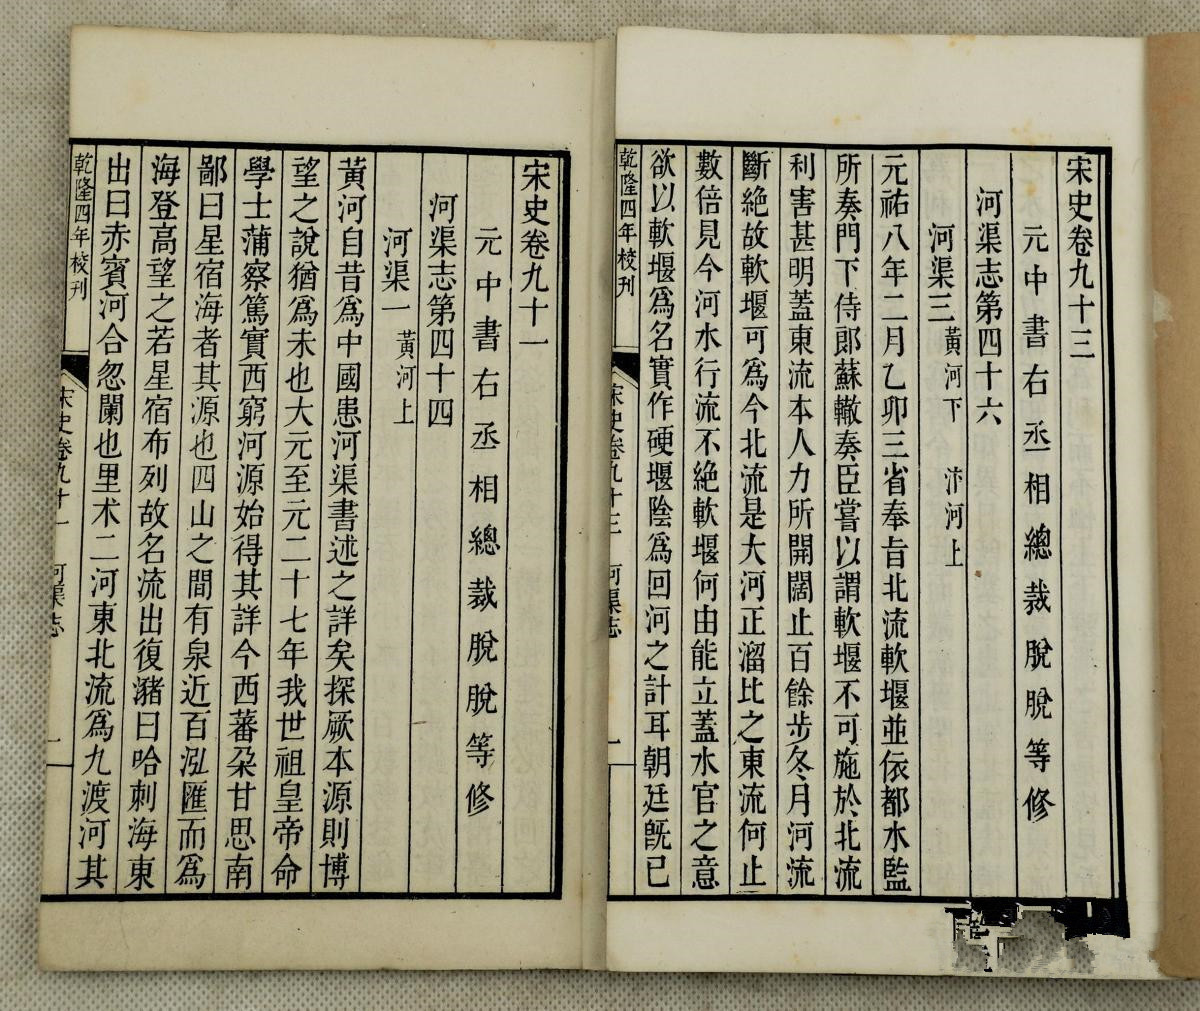 宋史卷九十三
元中書右丞相總裁脫脫等修
河渠志第四十六
河渠三 黃河下 汴河上
元祐八年二月乙卯三省奉旨北流軟堰並依都水監
所奏門下侍郎蘇轍奏臣嘗以謂軟堰不可施於北流
利害甚明蓋東流本人力所開闊止百餘步冬月河流
斷絕故軟堰可爲今北流是大河正溜比之東流何止
數倍見今河水行流不絕軟堰何由能立蓋水官之意
欲以軟堰爲名實作硬堰陰爲回河之計耳朝廷旣已
乾隆四年校刊
宋史卷九十三 河渠志
一
宋史卷九十一
元中書右丞相總裁脫脫等修
河渠志第四十四
河渠一 黃河上
黃河自昔爲中國患河渠書述之詳矣探厥本源則博
望之說猶爲未也大元至元二十七年我世祖皇帝命
學士蒲察篤實西窮河源始得其詳今西蕃朶甘思南
鄙曰星宿海者其源也四山之間有泉近百泓匯而爲
海登高望之若星宿布列故名流出復瀦曰哈剌海東
出曰赤賓河合忽闌也里术二河東北流爲九渡河其
乾隆四年校刊
宋史卷九十一 河渠志
一